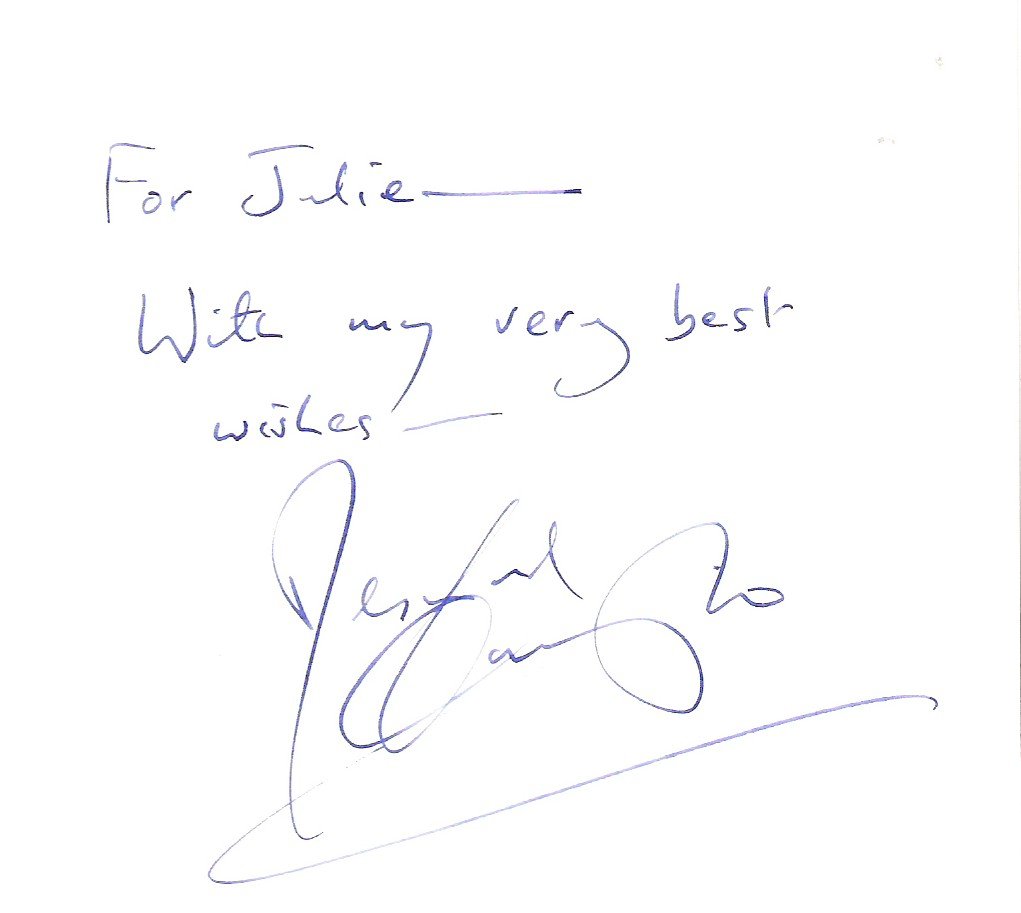 For Julie—
With my very best
wishes—